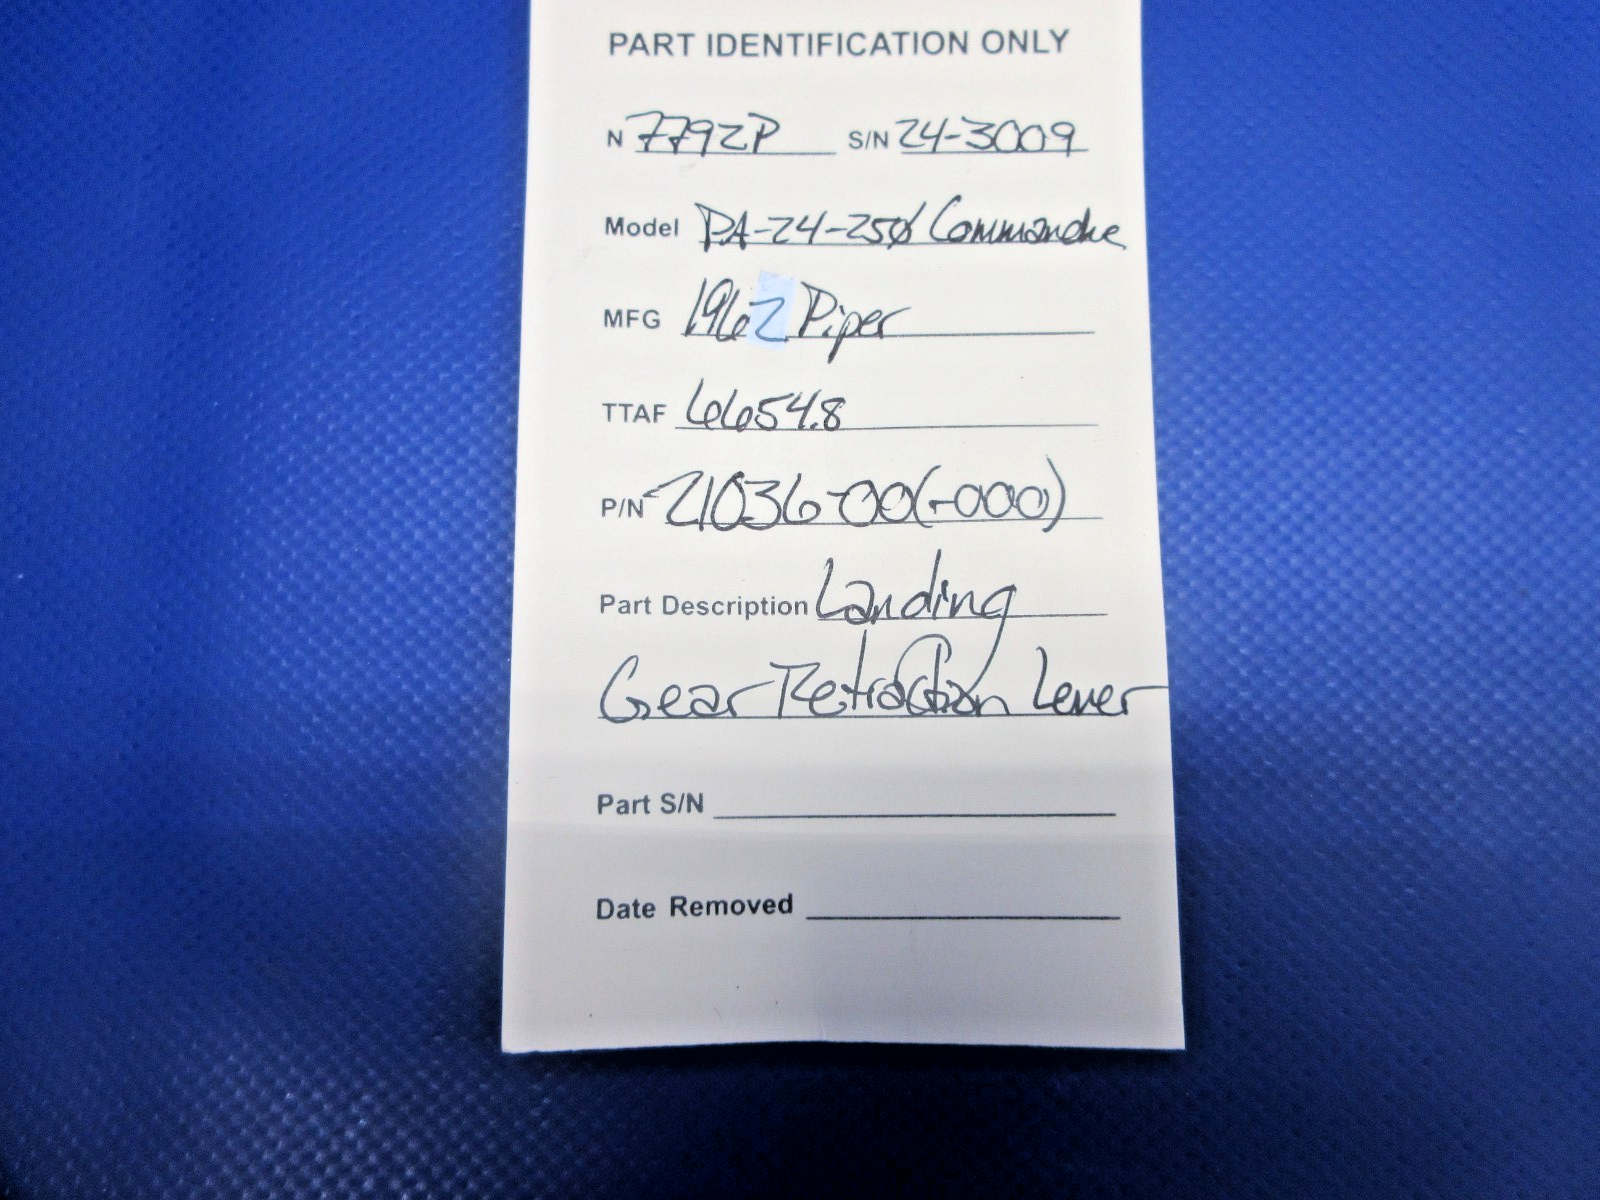 PART IDENTIFICATION ONLY
N 7792P S/N 24-3009
Model PA-24-250 Commanche
MFG 1962 Piper
TTAF 6654.8
P/N 21036-00(-000)
Part Description Landing
Gear Retraction Lever
Part S/N
Date Removed